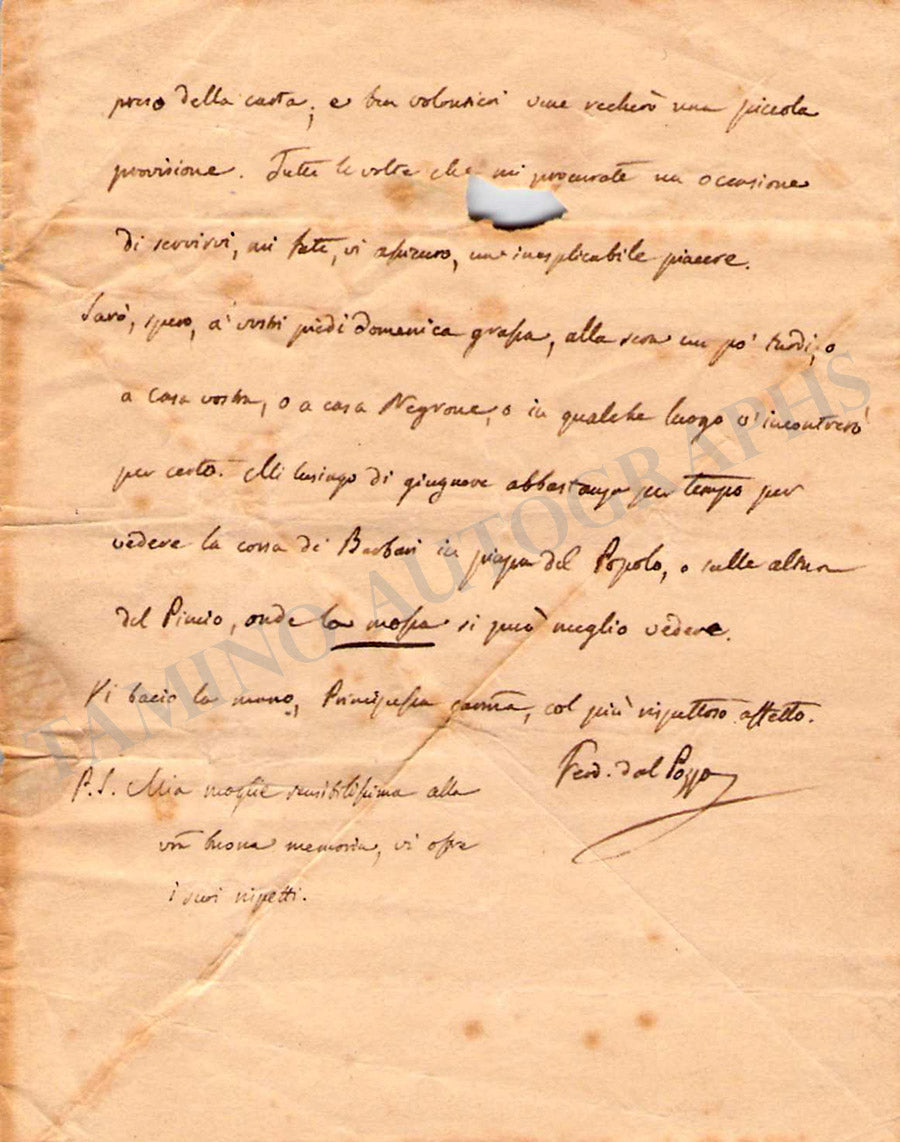 preso della carta; e ben volentieri ve ne recherò una piccola
provisione. Tutte le volte che mi procurate un occasione
di servirvi, mi fate, vi assicuro, un inesplicabile piacere.
Sarò, spero, a' vostri piedi domenica grassa, alla sera un po' tardi, o
a casa vostra, o a casa Negrone, o in qualche luogo v'incontrerò
per certo. Mi lusingo di giugnere abbastanza per tempo per
vedere la corsa de' Barbari in piazza del Popolo, o sulle alture
del Pincio, onde la mossa si può meglio vedere.
Vi bacio la mano, Principessa carma, col più rispettoso affetto.
Ferd. dal Pozzo
P.S. Mia moglie sensibilissima alla
vra buona memoria, vi offre
i suoi rispetti.
TAMINO AUTOGRAPHS